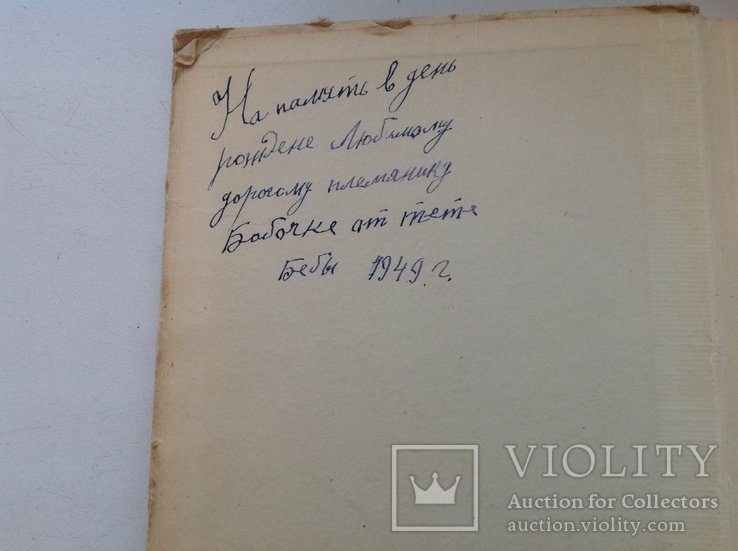 На память в день
рождене Любимому
дорогому племянику
Бобочке от тете
Бебы 1949 г.
VIOLITY
Auction for Collectors
auction.violity.com